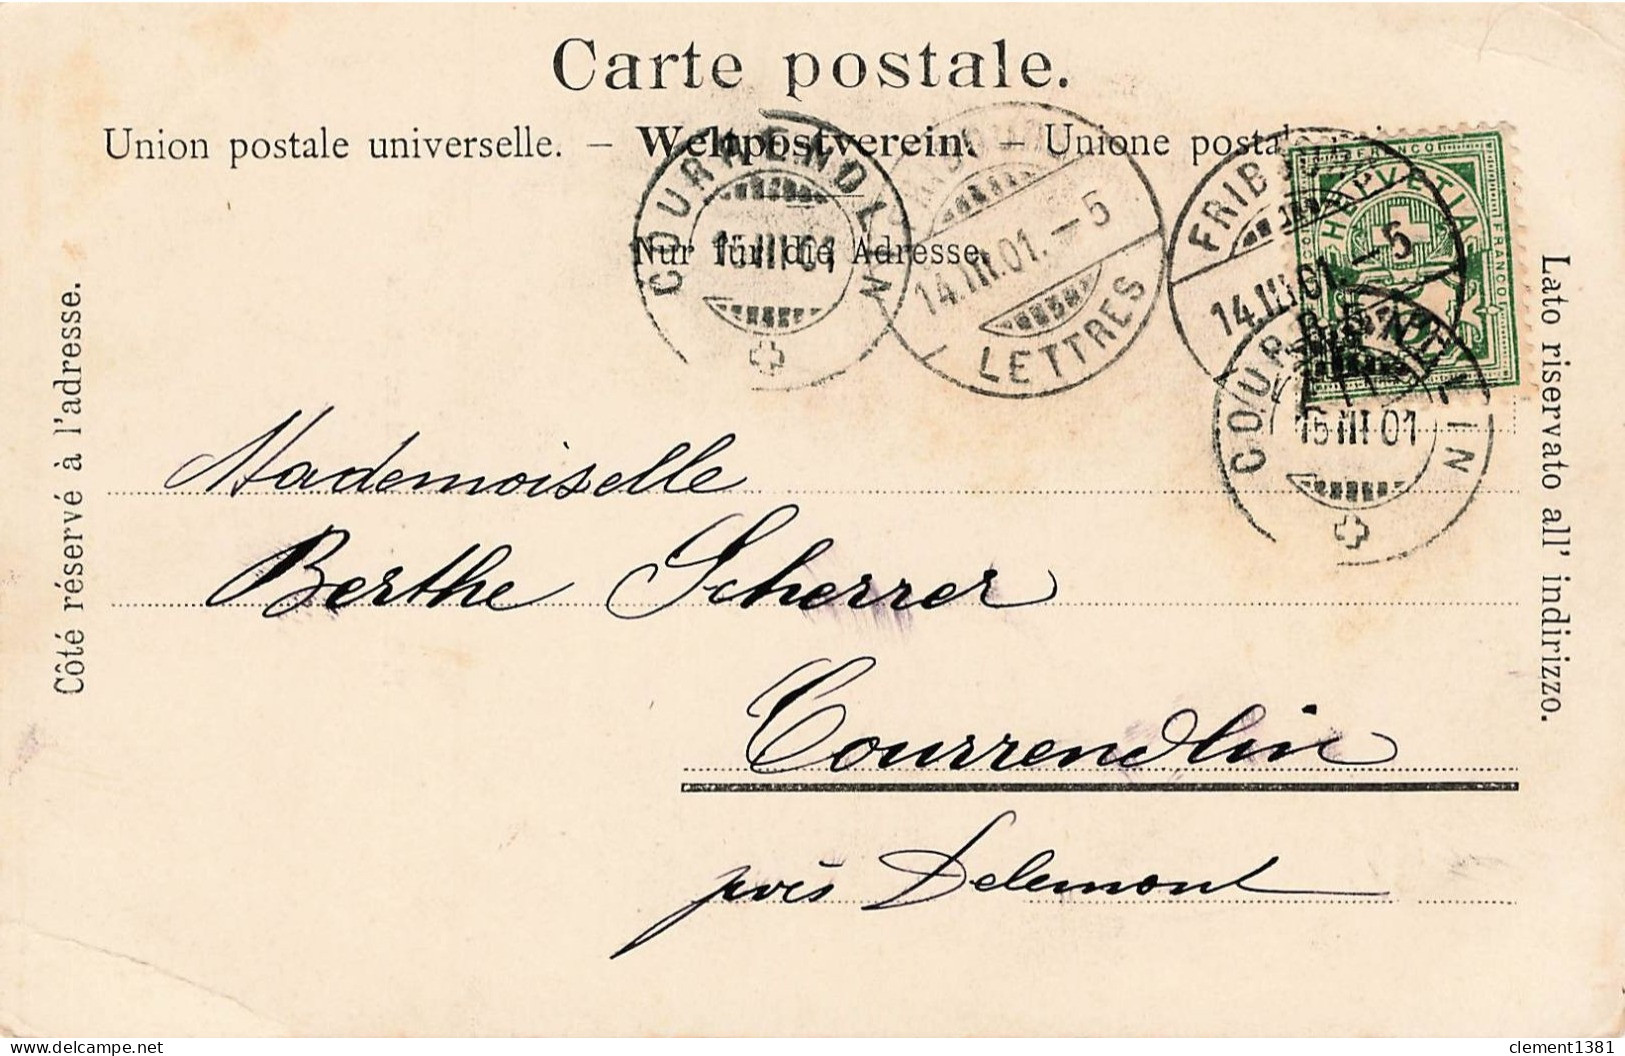 Carte postale.
Union postale universelle. — Weltpostverein. — Unione postale
Nur für die Adresse.
Côté réservé à l'adresse.
Lato riservato all' indirizzo.
COURRENDLIN
15 III 01
14.III.01.–5
LETTRES
FRIBOURG
14.III.01.–5
HELVETIA
FRANCO
COURRENDLIN
15 III 01
Mademoiselle
Berthe Scherrer
Courrendlin
près Delémont
delcampe.net
clement1381